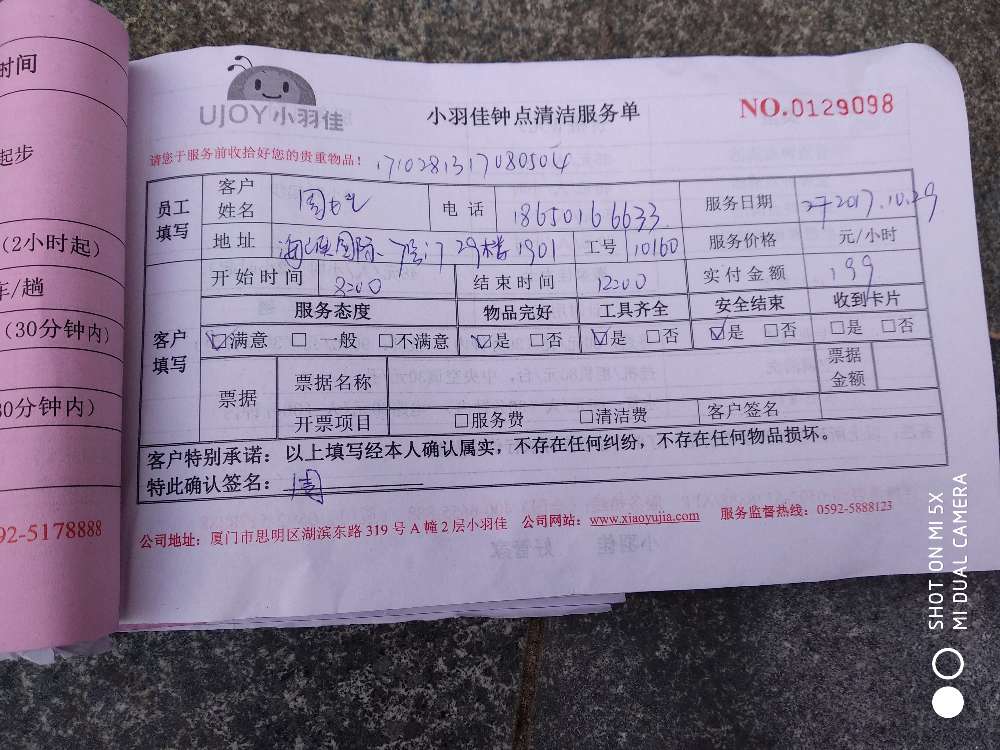 时间
起步
(2小时起)
车/趟
(30分钟内)
30分钟内)
92-5178888
UJOY小羽佳
小羽佳钟点清洁服务单
NO.0129098
请您于服务前收拾好您的贵重物品！
1710281317080504
员工填写
客户姓名
电话
18650166633
服务日期
2017.10.29
地址
国际
29楼1901
工号
10160
服务价格
元/小时
客户填写
开始时间
8:00
结束时间
12:00
实付金额
199
服务态度
物品完好
工具齐全
安全结束
收到卡片
☑满意 □一般 □不满意
☑是 □否
☑是 □否
☑是 □否
□是 □否
票据
票据名称
票据金额
开票项目
□服务费 □清洁费
客户签名
客户特别承诺：以上填写经本人确认属实，不存在任何纠纷，不存在任何物品损坏。
特此确认签名：周
公司地址：厦门市思明区湖滨东路319号A幢2层小羽佳 公司网站：www.xiaoyujia.com 服务监督热线：0592-5888123
SHOT ON MI 5X
MI DUAL CAMERA